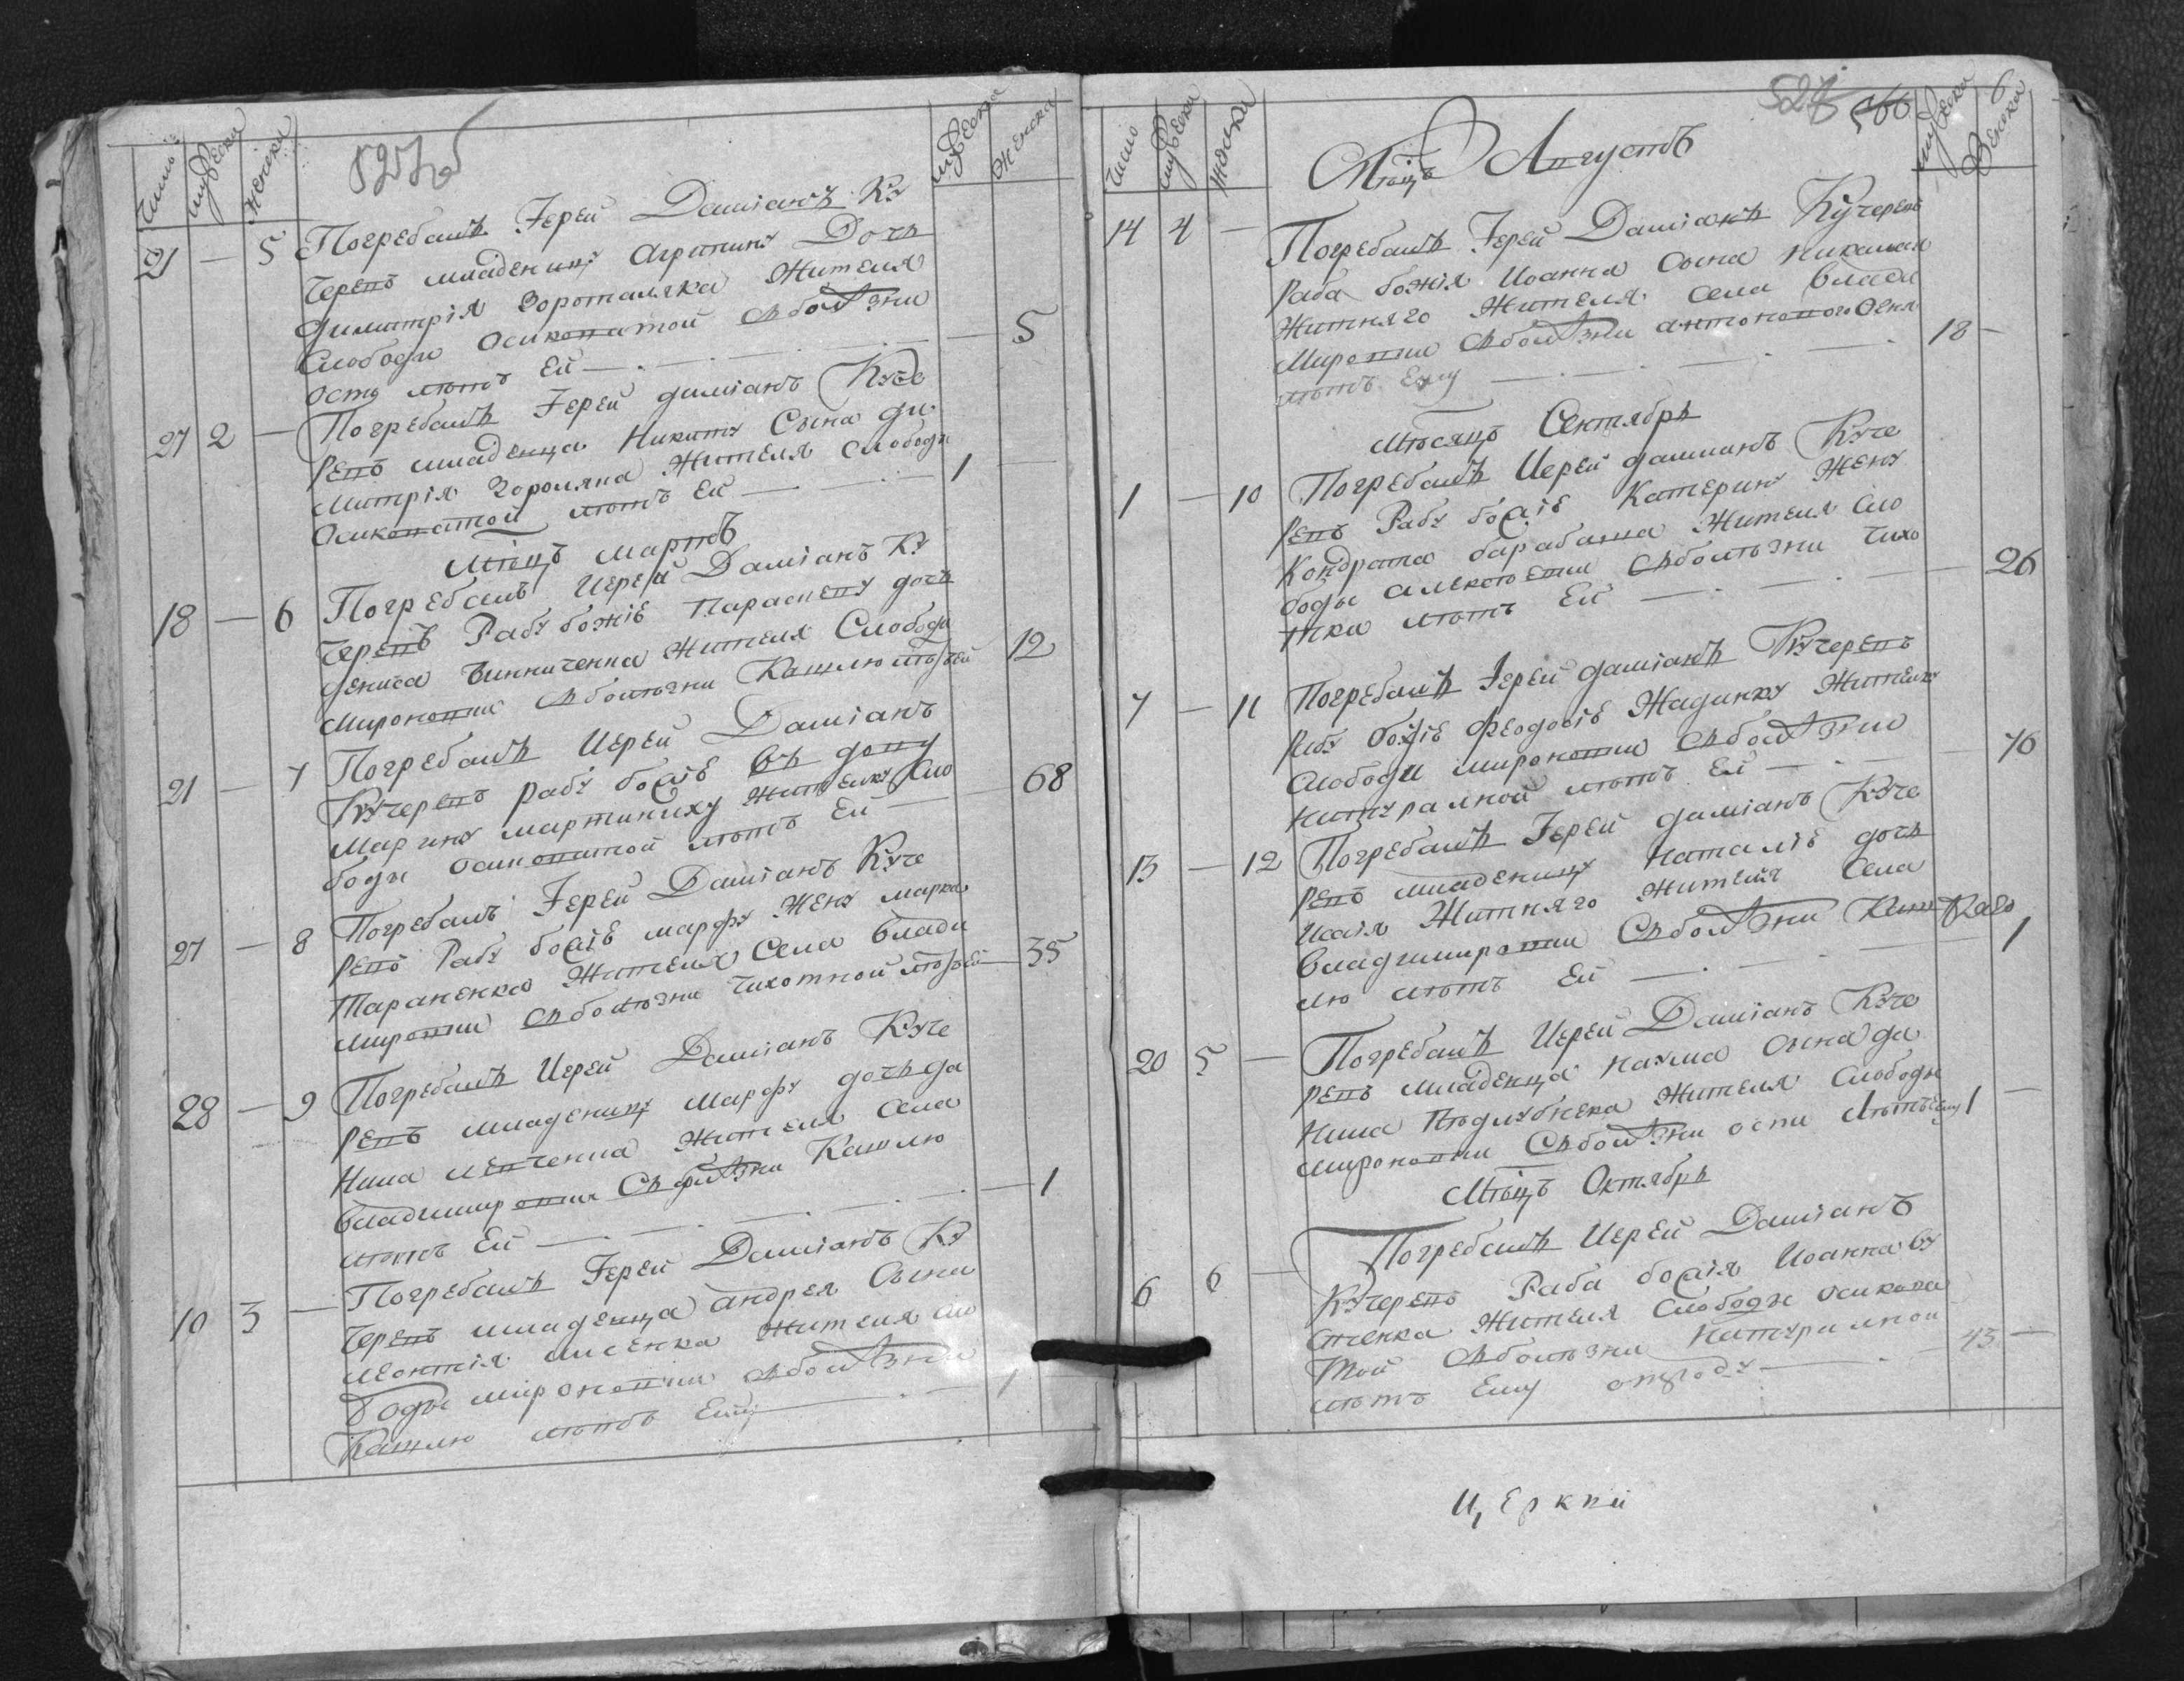 число мужеска женска
мужеска женска
21 — 5 Погребалъ Іерей Даміанъ Ку
черевъ младеницу Агрипину Дочь
Димитрія Воротиляка Жителя
Слободы Осиковатой съ болѣзни
оспы лѣтъ Ей — 5
27 2 — Погребалъ Іерей даміанъ Куче
ревъ младенца Никиту Сына ди
митрія Жителя Слободы
Осиковатой лѣтъ Ей — 1 —
Мѣцъ мартъ
18 — 6 Погребалъ Иерей Даміанъ Ку
черевъ Рабу божіѣ Параскеву дочь
дениса Винниченка Жителя Слободы
Мироновки съ болѣзни Кашлю лѣтъ Ей 12
21 — 7 Погребалъ Иерей Даміанъ
Кучеревъ рабу божіѣ въ дову
Марину мартиниху Жителку сло
боды Осиковатой лѣтъ Ей — 68
27 — 8 Погребалъ Іерей Даміанъ Куче
ревъ Рабу божіѣ марфу Жену марка
Тараненка Жителя Села влади
мировки съ болѣзни чихотной лѣтъ Ей 35
28 — 9 Погребалъ Иерей Даміанъ Куче
ревъ младеницу Марфу дочь да
нила Левченка Жителя Села
владимировки Съ болѣзни Кашлю
лѣтъ Ей — 1
10 3 — Погребалъ Іерей Даміанъ Ку
черевъ младенца андрея Сына
леонтія лисенка Жителя сло
боды мироновки съ болѣзни
Кашлю лѣтъ Ему — 1
число мужеска женска
Мѣцъ Августъ
мужеска женска
14 4 — Погребалъ Іерей Даміанъ Кучеревъ
раба божія Иоанна Сына
Житняго Жителя Села влади
Мировки съ болѣзни антонового Огня
лѣтъ Ему — 18 —
Мѣсяцъ Сентябрь
1 — 10 Погребалъ Иерей даміанъ Куче
ревъ Рабу божіѣ Катерину Жену
Кондрата барабаша Жителя Сло
боды алексѣевки съ болѣзни чихо
тки лѣтъ Ей — 26
7 — 11 Погребалъ Іерей даміанъ Кучеревъ
рабу божіѣ Феодосіѣ Жадинку Жителку
Слободы мироновки съ болѣзни
натуралной лѣтъ Ей — 76
13 — 12 Погребалъ Іерей даміанъ Куче
ревъ младеницу наталіѣ дочь
Исаія Житняго Жителя Села
владимировки Съ болѣзни Каш
лю лѣтъ Ей — 1
20 5 — Погребалъ Иерей Даміанъ Куче
ревъ младенца наума Сына да
нила Жителя Слободы
мироновки Съ болѣзни оспи Лѣтъ Ему 1 —
Мѣцъ Октябрь
6 6 — Погребалъ Иерей Даміанъ
Кучеревъ Раба божія Иоанна
Жителя Слободы осикова
той съ болѣзни натуралной
лѣтъ Ему отроду — 43 —
Церкви